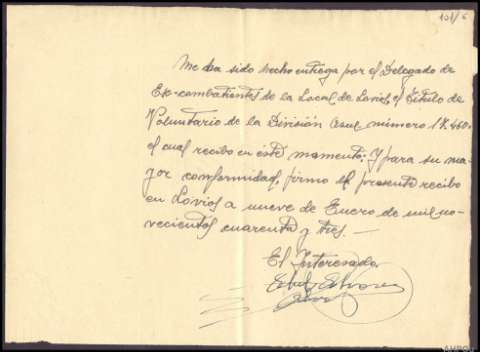 101/6
Me ha sido hecho entrega por el Delegado de
Ex-combatientes de la Local de Lovios, el Titulo de
Voluntario de la División Azul número 17.460.
el cual recibo en éste momento; Y para su ma-
yor conformidad, firmo el presente recibo
en Lovios a nueve de Enero de mil no-
vecientos cuarenta y tres. —
El Interesado
Alvarez
AHPOU